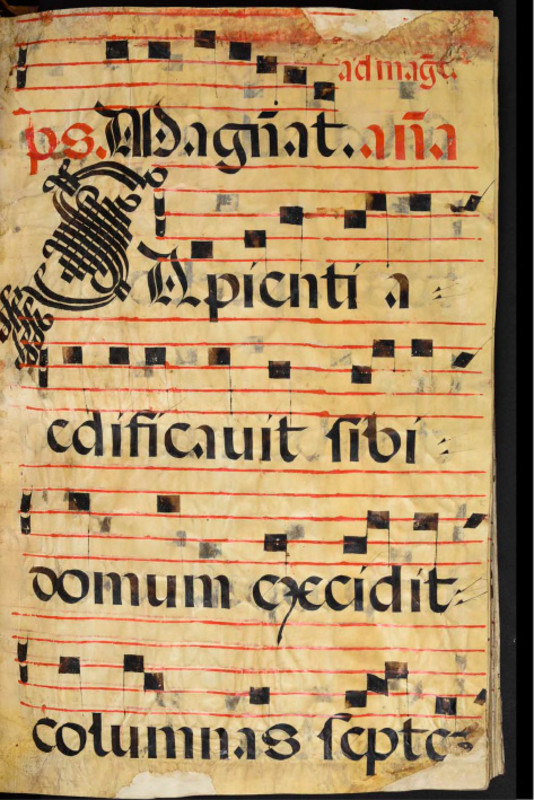 ad mag̃t.
ps. Magñat. aña
SApienti a
edificauit sibi
domum excidit
columnas septe